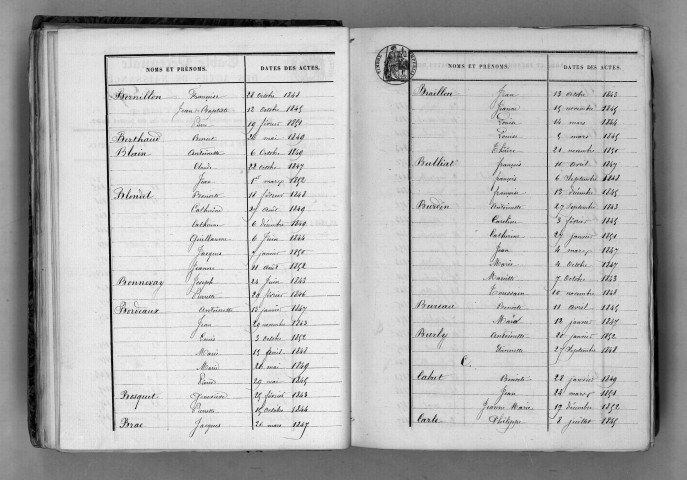 NOMS ET PRÉNOMS. DATES DES ACTES.
Bernillon Françoise 28 Octobre 1848
Jean Baptiste 12 Octobre 1845
Pierre 19 février 1851
Berthaud Benoit 20 mai 1849
Blain Antoinette 6 Octobre 1849
Claude 22 Octobre 1847
Jean 1er mars 1852
Blondel Benoite 18 février 1848
Catherine 27 Avril 1849
Catherine 6 décembre 1849
Guillaume 6 Juin 1844
Jacques 7 janvier 1850
Jeanne 11 Avril 1852
Bonnevay Joseph 24 Juin 1843
Pierrette 20 février 1846
Bordeaux Antoinette 12 janvier 1847
Jean 29 novembre 1843
Louis 3 octobre 1852
Marie 15 Avril 1848
Marie 26 mai 1849
Pierre 29 mai 1845
Bosquet 25 février 1843
Pierrette 15 Octobre 1844
Brac Jacques 26 mars 1847
NOMS ET PRÉNOMS. DATES DES ACTES.
Braillon Jean 13 octobre 1843
Jeanne 15 novembre 1845
Louise 14 mars 1844
Louise 5 mars 1845
21 novembre 1850
Bulliet françois 10 Avril 1847
françois 6 Septembre 1848
françoise 12 décembre 1845
Burdin Antoinette 27 septembre 1843
Caroline 3 février 1845
Catherine 24 janvier 1851
Jean 4 mars 1847
Marie 4 Octobre 1847
Mariette 7 Octobre 1843
Toussaint 10 novembre 1848
Bureau Benoite 11 Avril 1845
Marie 12 janvier 1847
Burby Antoinette 20 janvier 1852
27 Septembre 1848
C.
Cabut Benoite 28 janvier 1849
Jean 24 mars 1851
Jeanne Marie 19 décembre 1852
Carle Philippe 8 juillet 1845